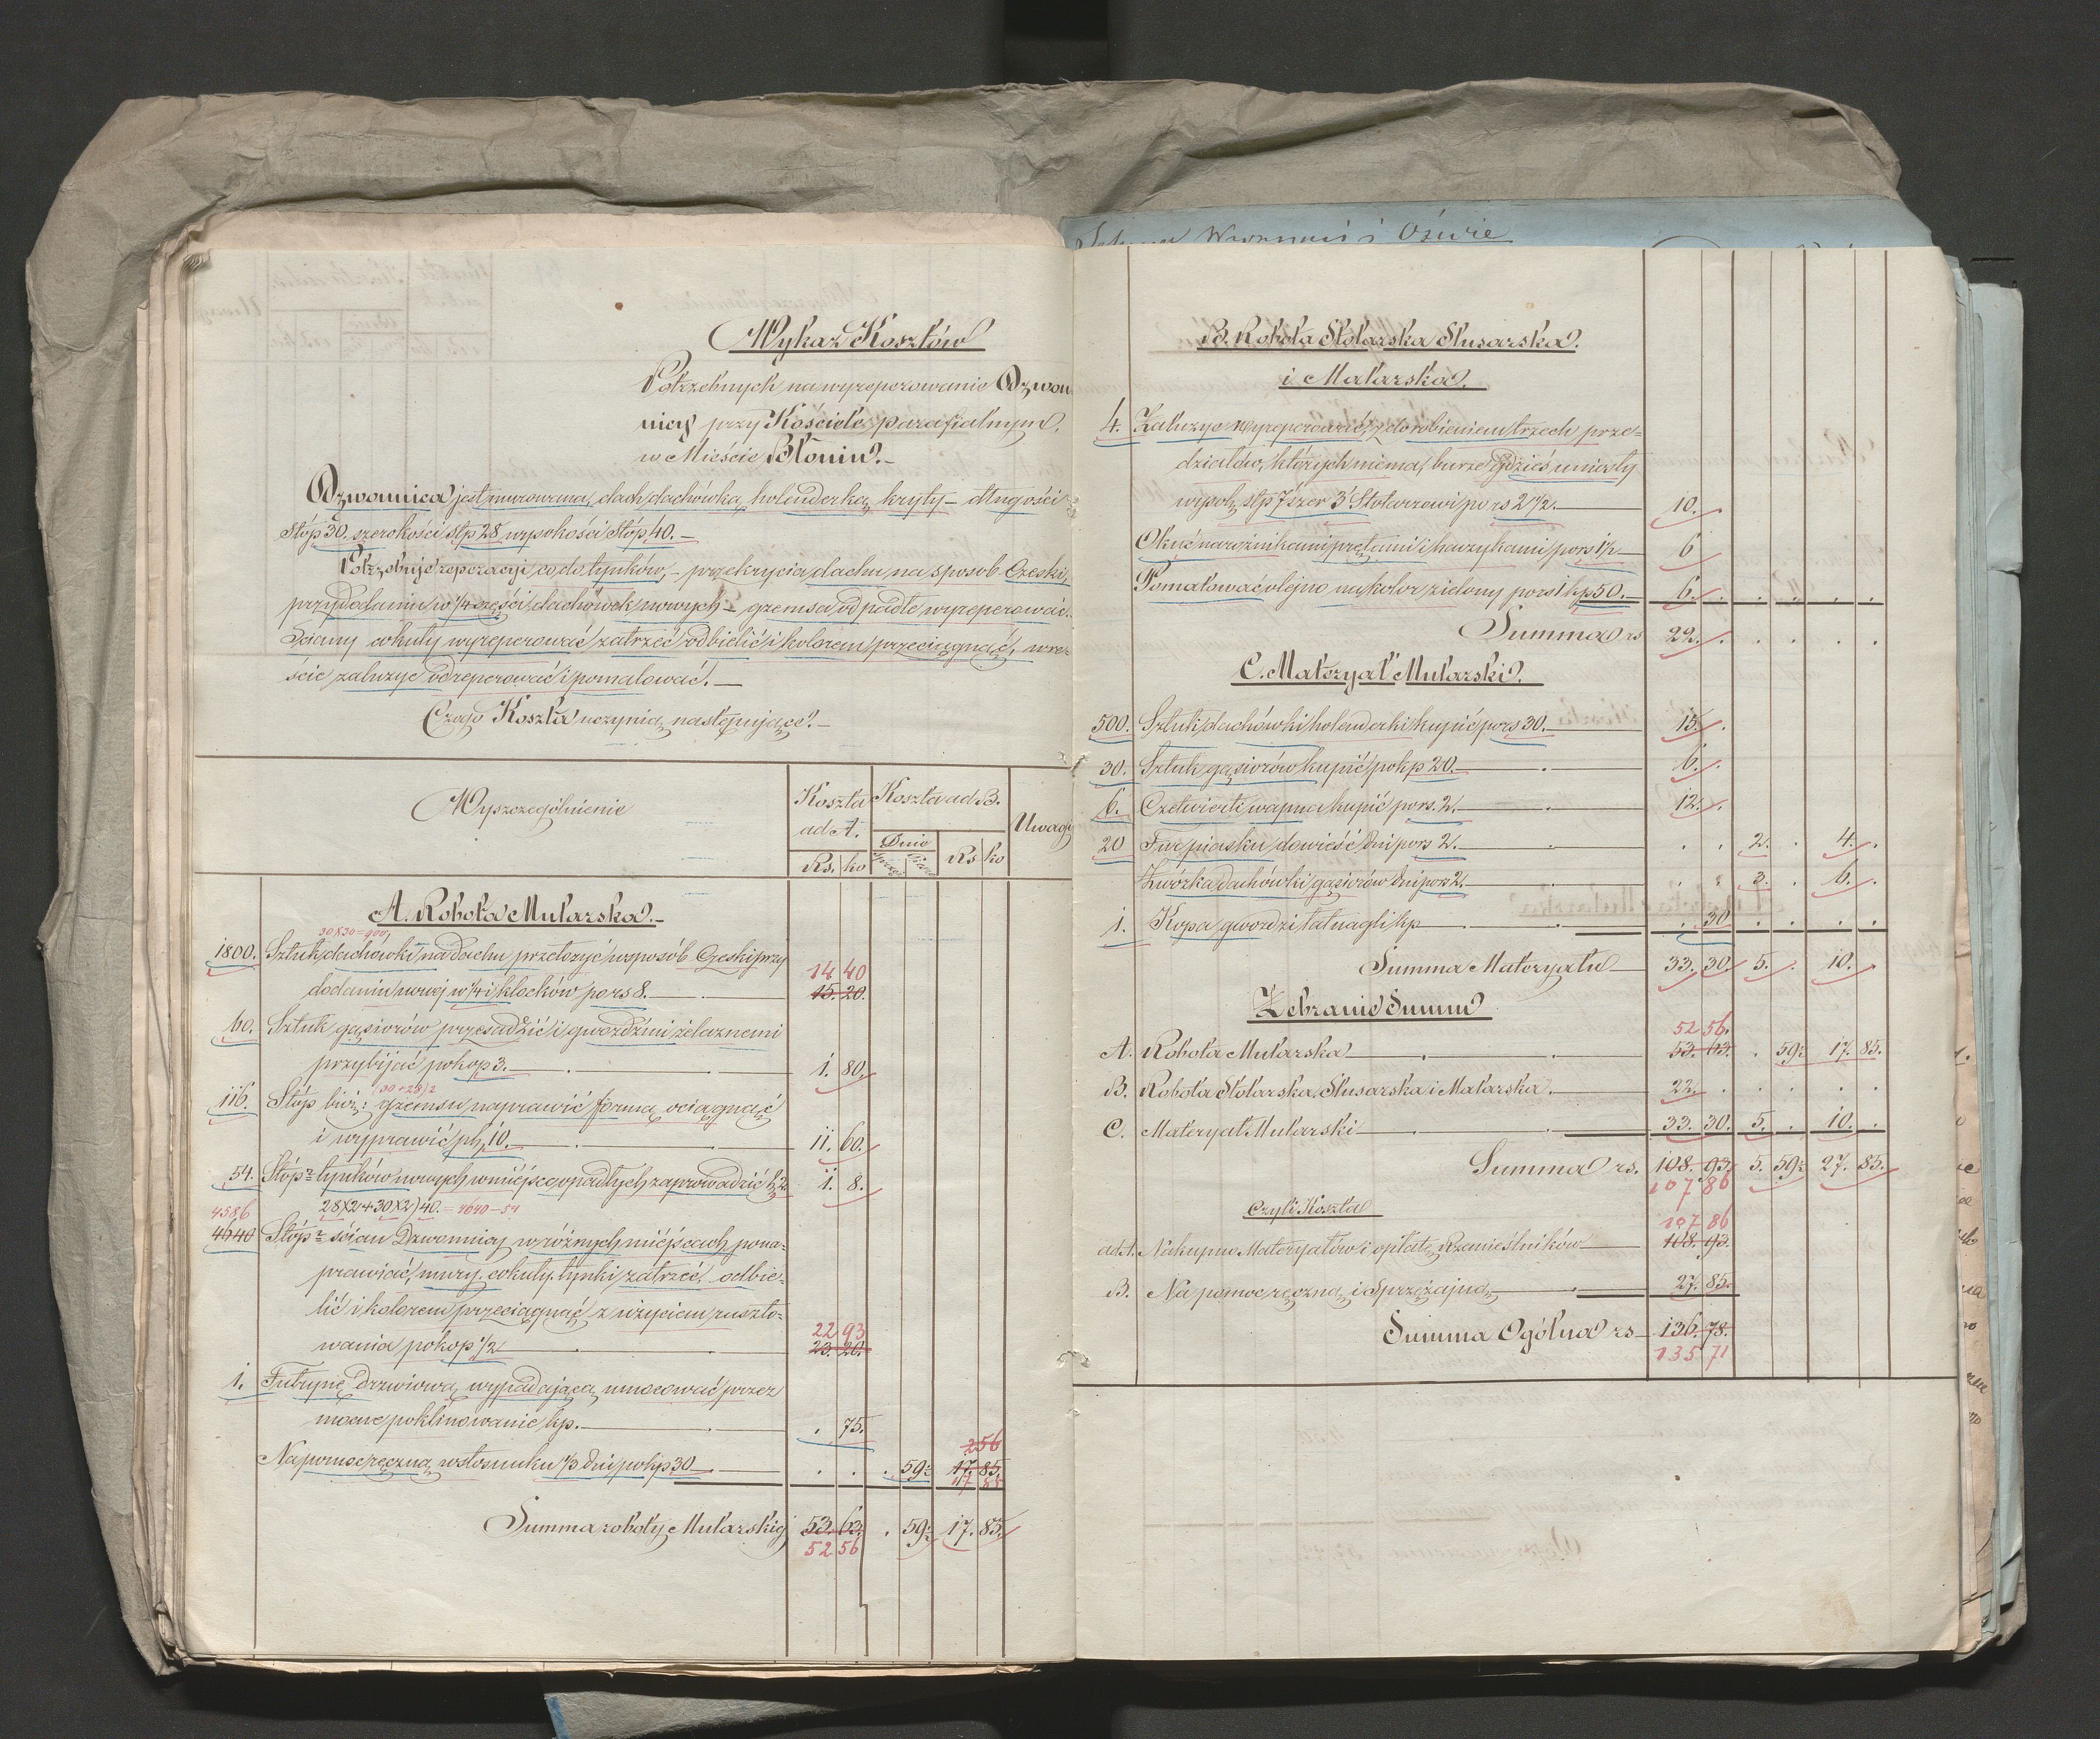 Wykaz Kosztów
Potrzebnych na wyreperowanie Dzwon
nicy przy Kościele parafialnym
w Mieście Błoniu.
Dzwonnica jest murowana, dach dachówką holenderką kryty – długości
Stóp 30. szerokości stp 28 wysokości Stóp 40. –
Potrzebuje reperacyi, co do tynków, – przekrycia dachu na sposob Czeski,
przydaniu w 1/4 części dachówek nowych – gzemsa odpadłe wyreperować.
Sciany cokuły wyreperować zatrzeć odbielić i kolorem przeciągnąć, wre-
ście zaluzye odreperować i pomalować. –
Czego Koszta uczynią następujące. –
Wyszczególnienie
Koszta ad A.
Koszta ad B.
Uwagi
Dnie
Rs. ko
Rs ko
A. Robota Mularska. –
30x30=900
1800. Sztuk dachówki na dachu przełozyć w sposób Czeski przy
14 40
dodaniu nowej w 1/4 i klocków po rs 8. 15. 20.
60. Sztuk gąsiorów przesadzić i gwoździmi żelaznemi
przybijać po kop 3. 1. 80.
30+28)2
116. Stóp bież: gzemsu naprawić formą ociągnąć
i wyprawić pk 10. 11. 60.
54. Stóp tynków nowych w miéjsce opadłych zaprowadzić k 2 1. 8.
28x2+30x2)40. = 4640–54
4586
4640 Stóp ścian Dzwonnicy w różnych miéjscach pona-
prawiać, mury, cokuły, tynki zatrzéć, odbie-
lić i kolorem przeciągnąć z użyciem ruszto-
22 93
wania po kop 1/2 23. 20.
1. Futrynę drzwiową wypadającą umocować przez
mocne poklinowanie kp. . 75.
256
Na pomoc ręczną w stosunku 1/3 dni po kp 30 . . . 59 1/2 17. 85.
17 85
Summa roboty Mularskiej 53. 63. . 59 1/2 17. 85.
52 56
B. Robota Stolarska Slusarska.
i Malarska.
4. Zaluzye wyreperować z dorobieniem trzech prze-
działów, których niema, burze gdzieś uniosły
wysok stp 7 szer 3 Stolarzowi po rs 2 1/2. 10.
Okuć narożnikami prętami i haczykami po rs 1 1/2 6
Pomalować olejno na kolor zielony po rs 1 kp 50. 6. . . . . .
Summa rs 22. . . . . .
C. Materyał Mularski.
500. Sztuk dachówki holenderki kupić po rs 30. 15. .
30. Sztuk gąsiorów kupić po kp 20. 6. .
6. Czetwierti wapna kupić po rs. 2. 12. .
20 Fur piasku dowieść dni po rs 2. . . 2. . 4. .
Zwózka dachówki gąsiorów dni po rs 2. . . 3. . 6. .
1. Kopa gwozdzi łatnagli kp . 30 . . . .
Summa Materyału 33. 30 5. . 10.
Zebranie Summ
52 56.
A. Robota Mularska 53. 63. . 59 1/2 17. 85.
B. Robota Stolarska, Slusarska i Malarska. 22. . . . . .
C. Materyał Mularski 33. 30. 5. . 10. .
Summa rs. 108. 93. 5. 59 1/2 27. 85.
107 86
Czyli Koszta
107 86
ad A. Na kupno Materyałów i opłatę Rzemieślników 108. 93.
B. Na pomoc ręczną i Sprzężajną 27. 85.
Summa Ogólna rs 136. 78.
135 71